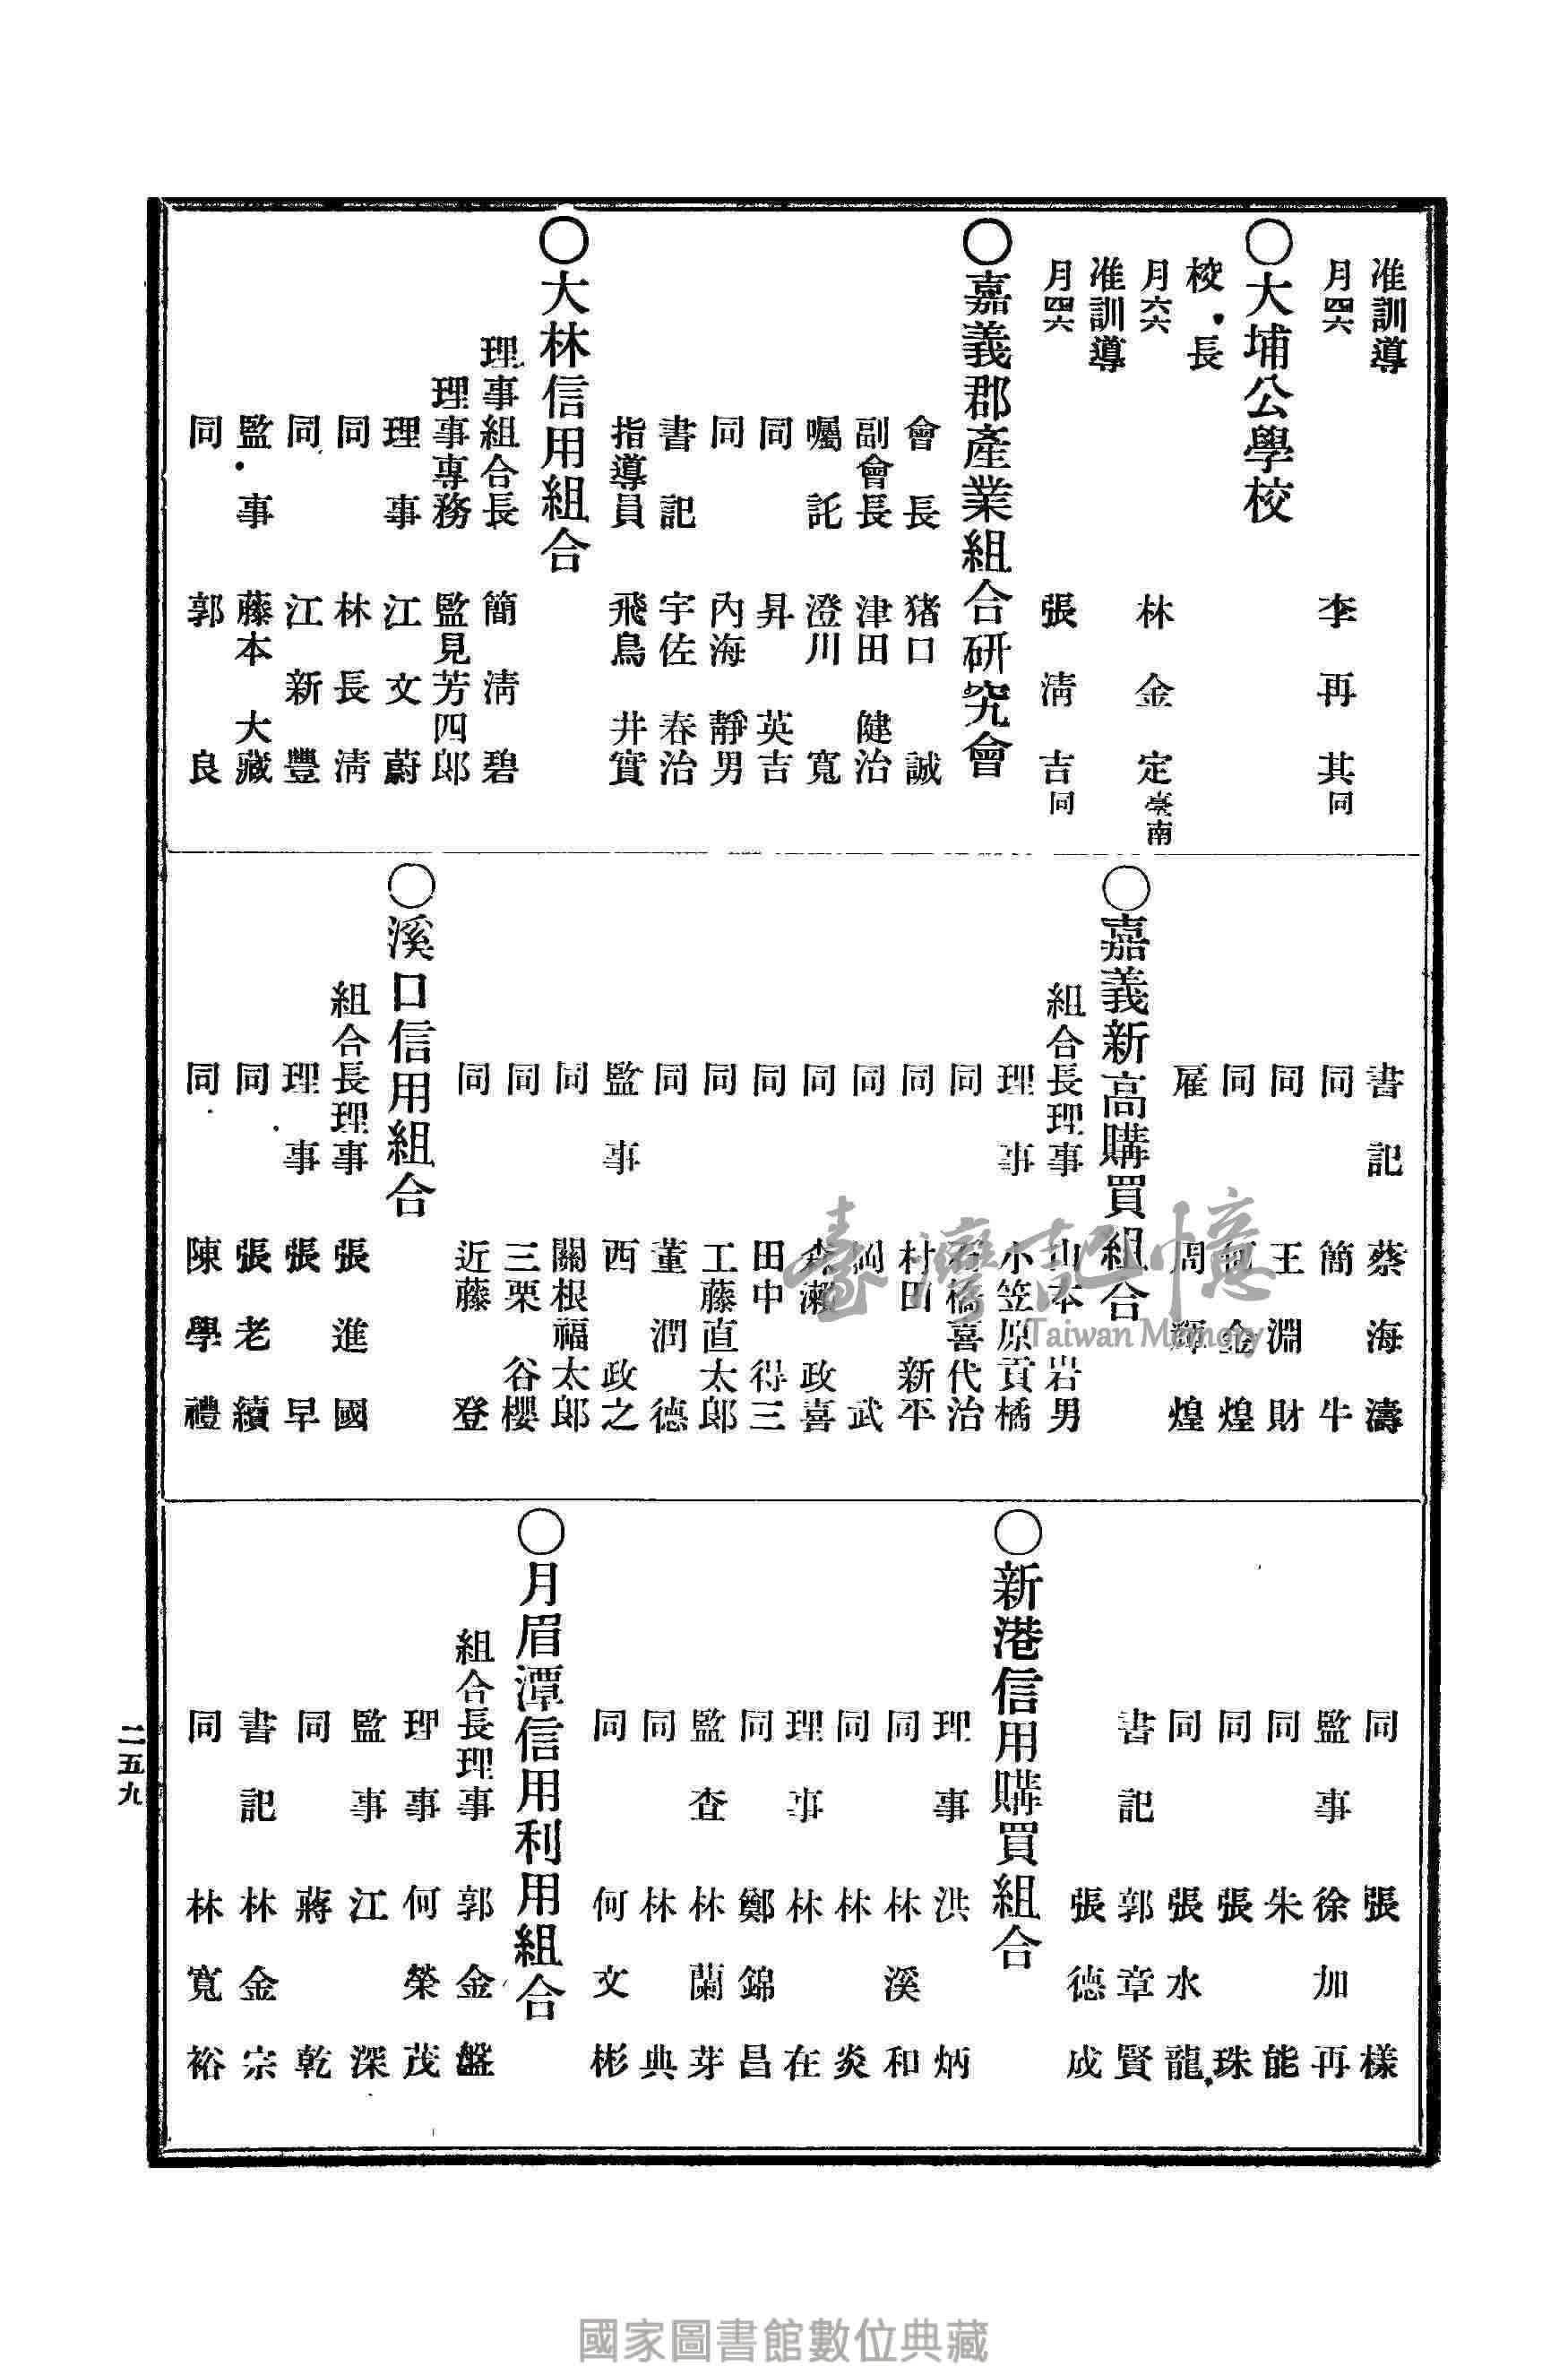 准訓導
月四六 李再其同
〇大埔公學校
校長
月六六 林金定臺南
准訓導
月四六 張淸吉同
〇嘉義郡產業組合研究會
會長 猪口誠
副會長 津田健治
囑託 澄川寬
同 昇英吉
同 內海靜男
書記 宇佐春治
指導員 飛鳥井實
〇大林信用組合
理事組合長 簡淸碧
理事專務 監見芳四郎
理事 江文蔚
同 林長淸
同 江新豐
監事 藤本大藏
同 郭良
書記 蔡海濤
同 簡牛
同 王淵財
同 何金煌
雇 周輝煌
〇嘉義新高購買組合
組合長理事 山本岩男
理事 小笠原貢橘
同 石橋喜代治
同 村田新平
同 岡武
同 森瀨政喜
同 田中得三
同 工藤直太郎
同 董潤德
監事 西政之
同 關根福太郎
同 三栗谷櫻
同 近藤登
〇溪口信用組合
組合長理事 張進國
理事 張早
同 張老續
同 陳學禮
同 張樣
監事 徐加再
同 朱能
同 張珠
同 張水龍
書記 郭章賢
張德成
〇新港信用購買組合
理事 洪炳
同 林溪和
同 林炎
理事 林在
同 鄭錦昌
監查 林蘭芽
同 林典
同 何文彬
〇月眉潭信用利用組合
組合長理事 郭金盤
理事 何榮茂
監事 江深
同 蔣乾
書記 林金宗
同 林寬裕
二五九
臺灣記憶
Taiwan Memory
國家圖書館數位典藏